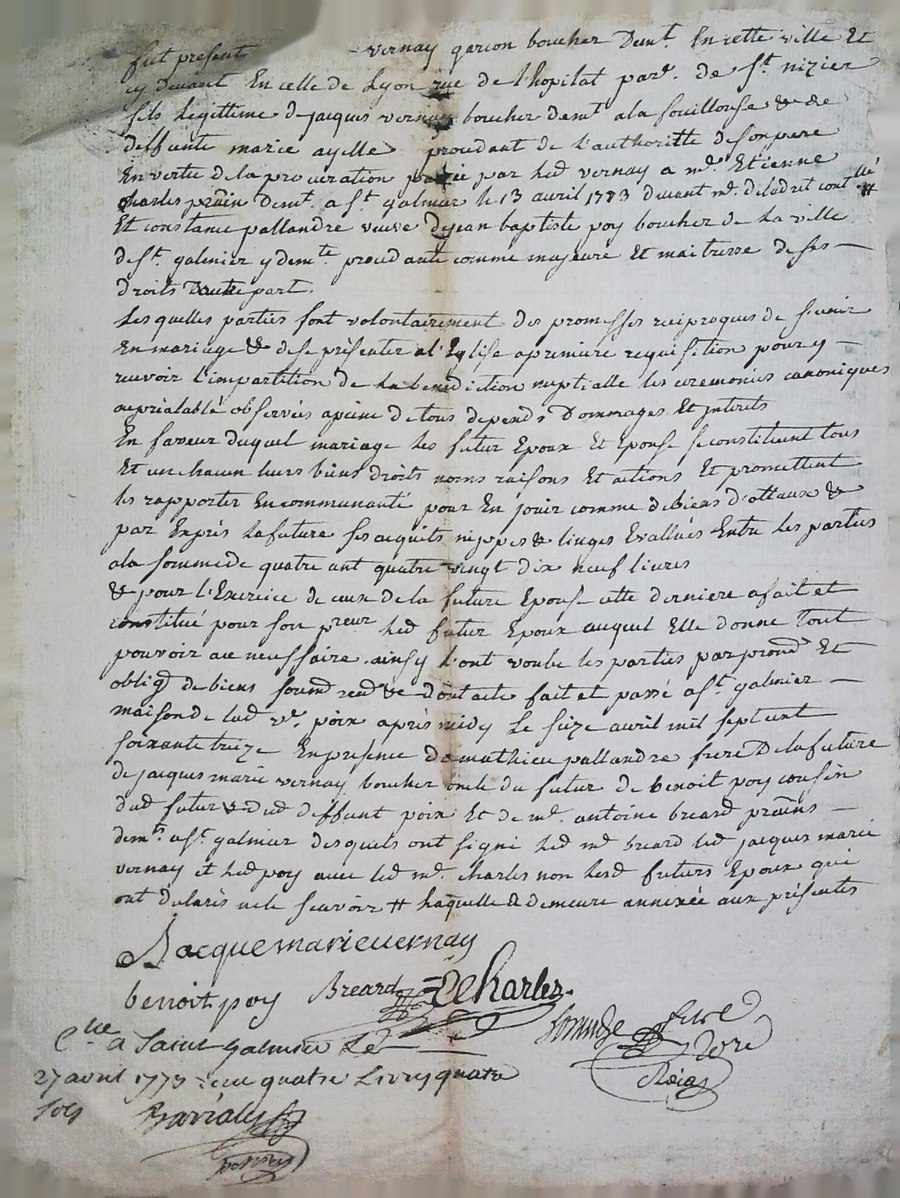 fut présent vernay garcon boucher Demt. En cette ville Et
cy devant En celle de Lyon rue de l'hopital parr. de St. nizier
fils Legittime de jacques vernay boucher demt. a la fouillouse & de
deffunte marie ayelle procedant de l'authoritté de son pere
En vertu de la procuration passée par led. vernay a me. Etienne
charles práin demt. a St. galmier le 13 avril 1773 devant me. delodret contllé #
Et constance pallandre veuve de jean baptiste poy boucher de La ville
de St. galmier y demte. procedante comme majeure Et maitresse de ses
droits Dautre part.
Lesquelles parties font volontairement des promesses reciproques de s'unir
En mariage & de se présenter a l'Eglise a premiere requisition pour y
recevoir l'impartition de La bénédiction nuptialle les ceremonies canoniques
au préalablé observées a peine de tous depends Dommages Et jnterets
En faveur duquel mariage Les futur Epoux Et Epouse se constituent tous
Et un chacun leurs biens droits noms raisons Et actions Et promettent
les rapporter En communauté pour En jouir comme de biens d'ottaux &
par Exprès La future ses acquits nipes & linges Evallués Entre Les parties
a la somme de quatre cent quatre vingt dix neuf livres
& pour l'Exercice de ceux de La future Epouse cette derniere a fait et
constitué pour son preur led. futur Epoux auquel Elle donne Tout
pouvoir a ce necessaire. ainsy l'ont voulu les parties par promd. Et
obligd. de biens soumd. rend. & dont acte fait et passé a St. galmier
maison de lad. ve. poix après midy Le seize avril mil sept cent
soixante treize En présence de mathieu pallandre frere De la future
de jacques marie vernay boucher oncle du futur de benoit poy cousin
dud. futur & dud. deffunt poix Et de me. antoine breard práins
demts. a St. galmier desquels ont signé led. me. breard led. jacques marie
vernay et led. poy avec led. me. charles non lesd. futurs Epoux qui
ont déclarés ne le scavoir # Laquelle & demeure annexée aux présentes
Jacque marie vernay
benoit poy Breard Charles
Clle a Saint Galmier Le
27 avril 1773 recu quatre Livres quatre
sols